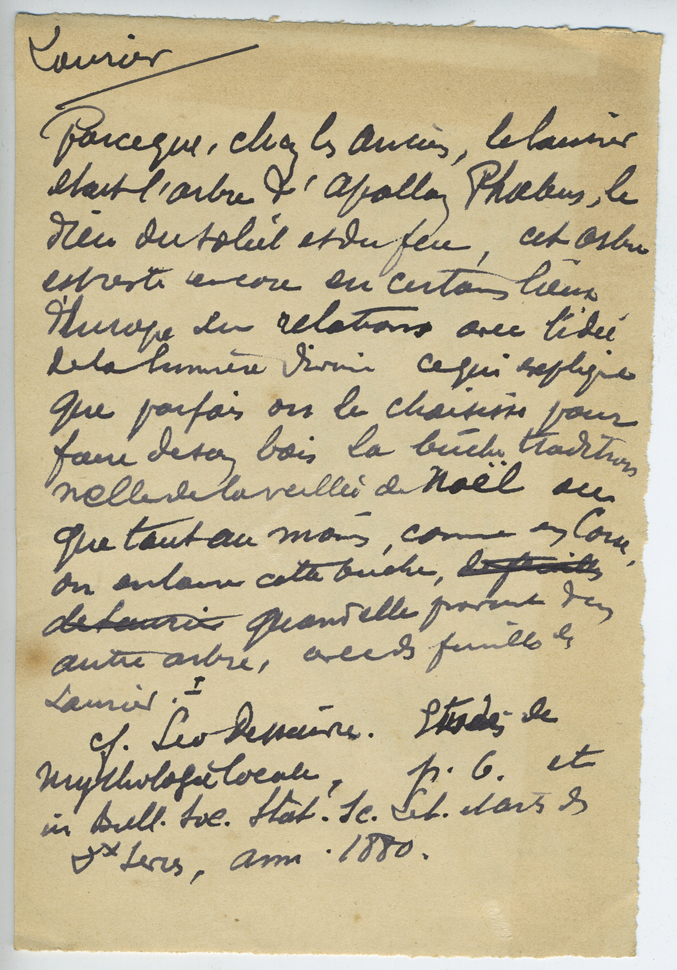 Laurier
Parceque, chez les anciens, le laurier
était l'arbre d'Apollon Phœbus, le
dieu du soleil et du feu, cet arbre
est resté encore en certains lieux
d'Europe en relations avec l'idée
de la lumière divine ce qui explique
que parfois on le choisisse pour
faire de son bois la bûche tradition
nelle de la veillée de Noël ou
que tout au moins, comme en Corse,
on entoure cette bûche, de feuilles
de laurier quand elle provient d'un
autre arbre, avec des feuilles de
Laurier. I
cf. Leo Desaivre. Etudes de
mythologie locale, p. 6. et
in Bull. Soc. Stat. Sc. Let. et arts des
Dx Sèvres, ann. 1880.